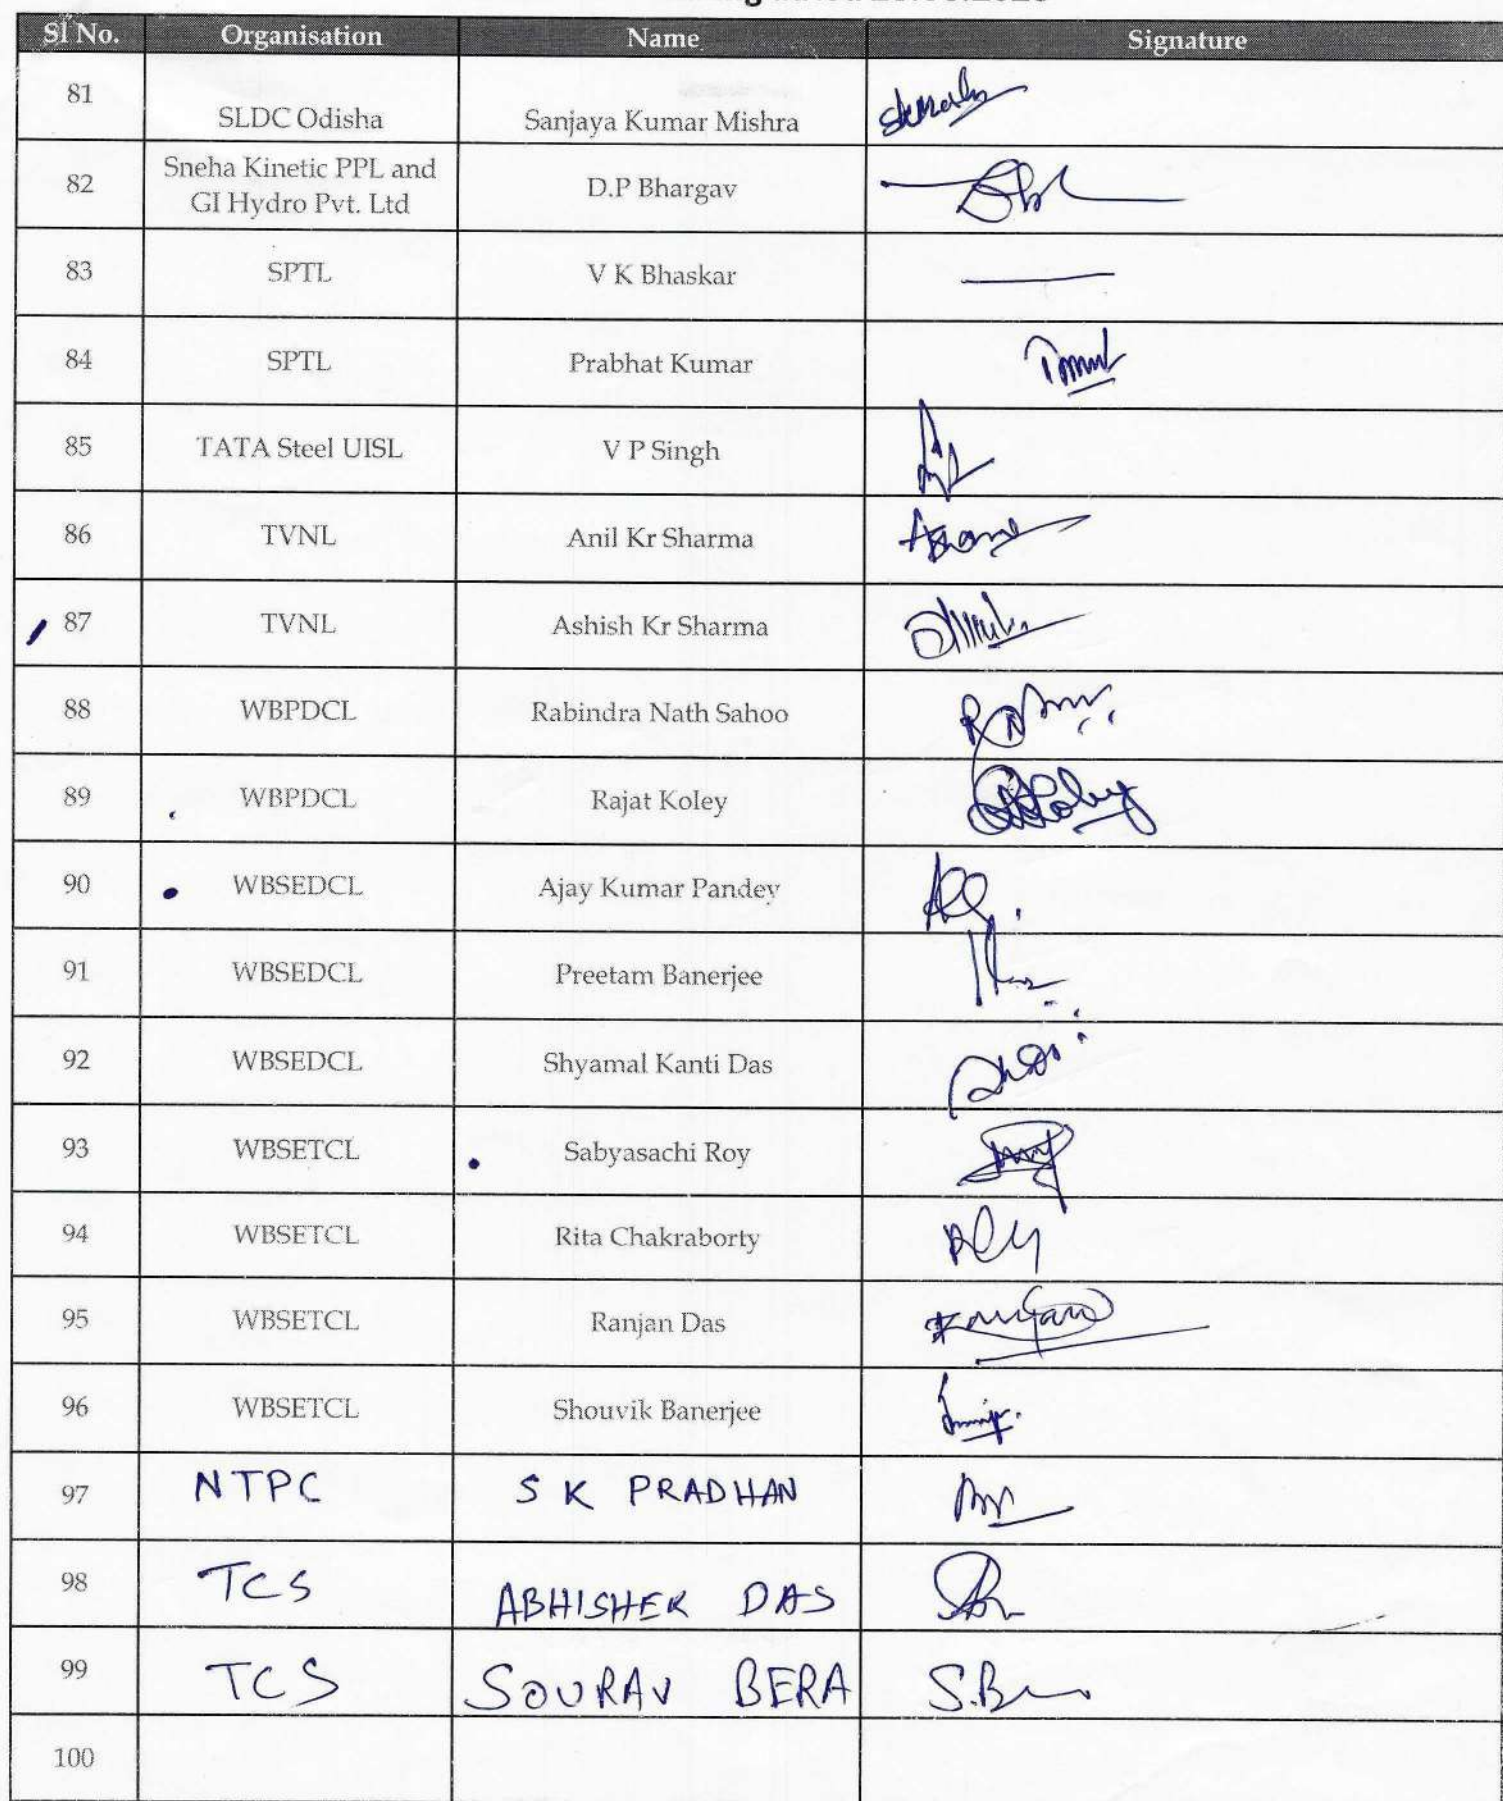 Sl No. Organisation Name Signature
81 SLDC Odisha Sanjaya Kumar Mishra
82 Sneha Kinetic PPL and
GI Hydro Pvt. Ltd D.P Bhargav
83 SPTL V K Bhaskar
84 SPTL Prabhat Kumar
85 TATA Steel UISL V P Singh
86 TVNL Anil Kr Sharma
87 TVNL Ashish Kr Sharma
88 WBPDCL Rabindra Nath Sahoo
89 WBPDCL Rajat Koley
90 WBSEDCL Ajay Kumar Pandey
91 WBSEDCL Preetam Banerjee
92 WBSEDCL Shyamal Kanti Das
93 WBSETCL Sabyasachi Roy
94 WBSETCL Rita Chakraborty
95 WBSETCL Ranjan Das
96 WBSETCL Shouvik Banerjee
97 NTPC S K PRADHAN
98 TCS ABHISHEK DAS
99 TCS SOURAV BERA
100